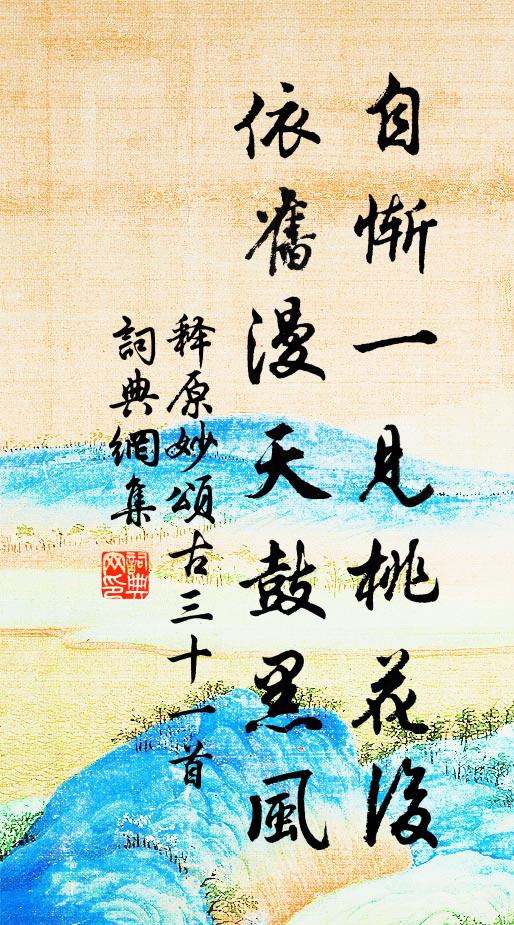 自惭一見桃花後
依舊漫天鼓黑風
释原妙頌古三十一首
詞典網集
詞典
网印